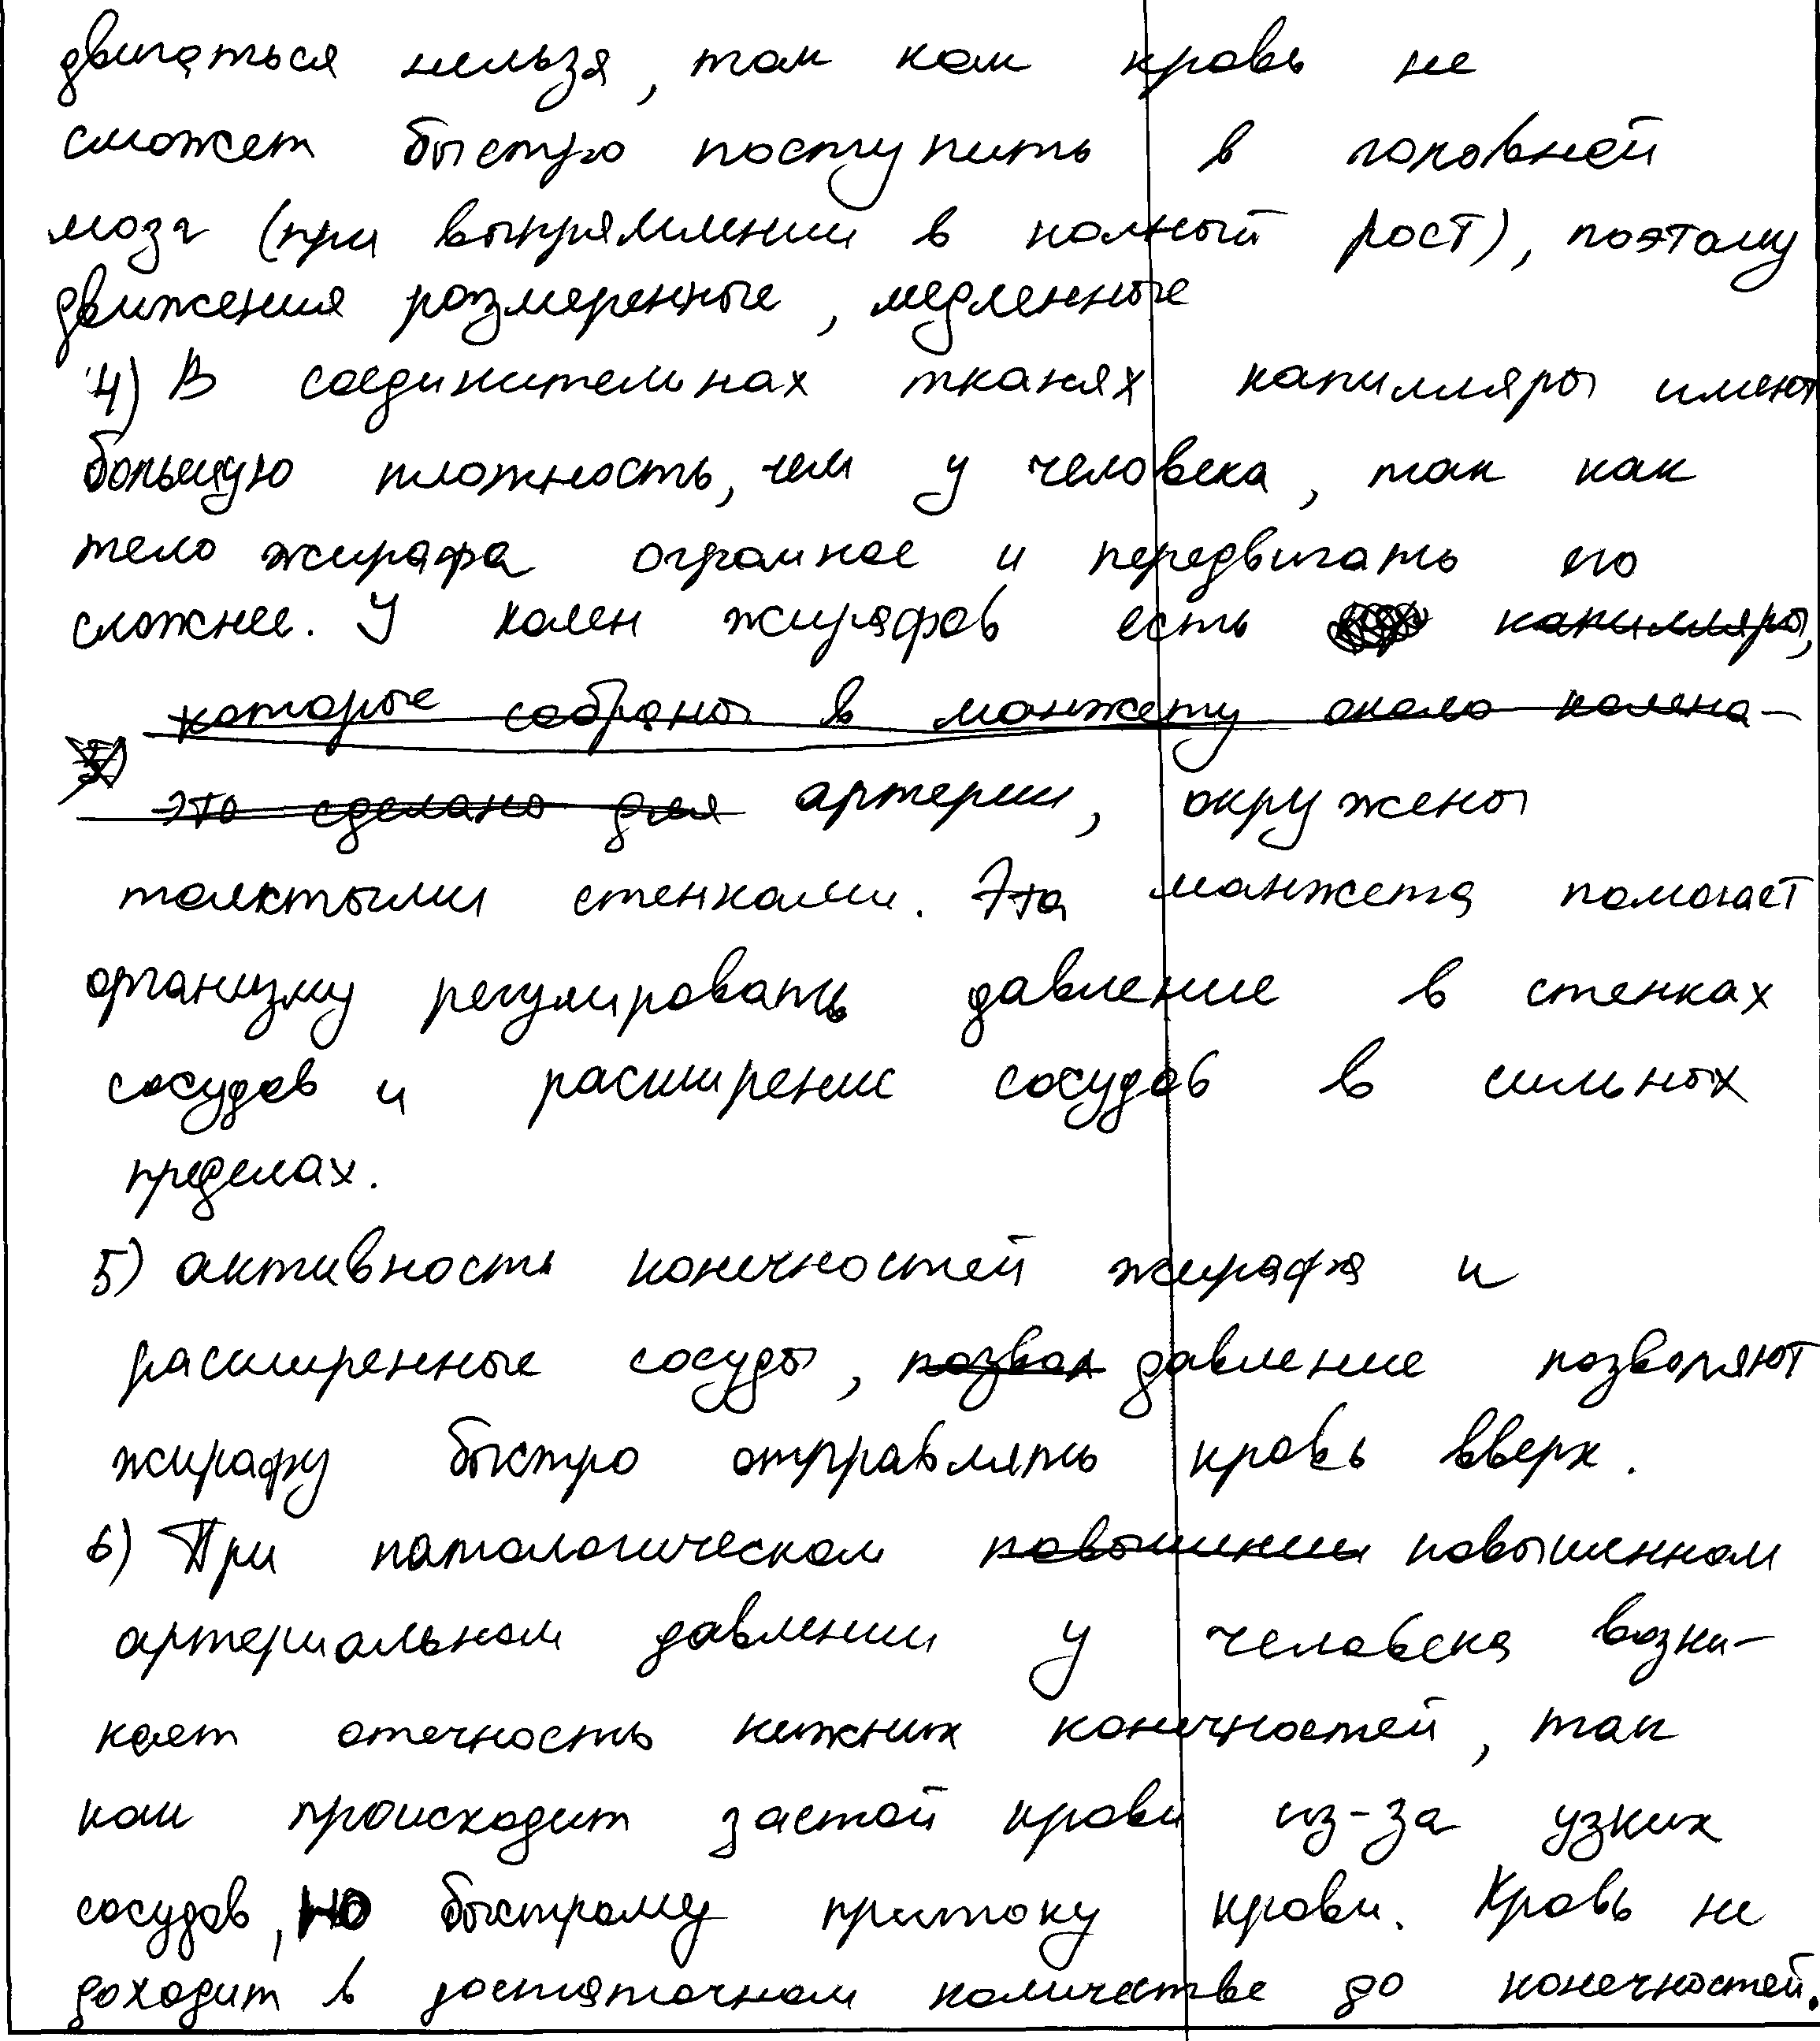 двигаться нельзя, так как кровь не
сможет быстро поступить в головной
мозг (при выпрямлении в полный рост), поэтому
движения размеренные, медленные
4) В соединительнах тканях капилляры имеют
большую плотность, чем у человека, так как
тело жирафа огромное и передвигать его
сложнее. У колен жирафов есть капилляры,
которые собраны в манжету около колена-
это сделано для артерии, окружены
толстыми стенками. Эта манжета помогает
организму регулировать давление в стенках
сосудов и расширение сосудов в сильных
пределах.
5) активность конечностей жирафа и
расширенные сосуды, позвол давление позволяют
жирафу быстро отправлять кровь вверх.
6) При патологическом повышении повышенном
артериальном давлении у человека возни-
кает отечность нижних конечностей, так
как происходит застой крови из-за узких
сосудов, но быстрому притоку крови. Кровь не
доходит в достаточном количестве до конечностей.